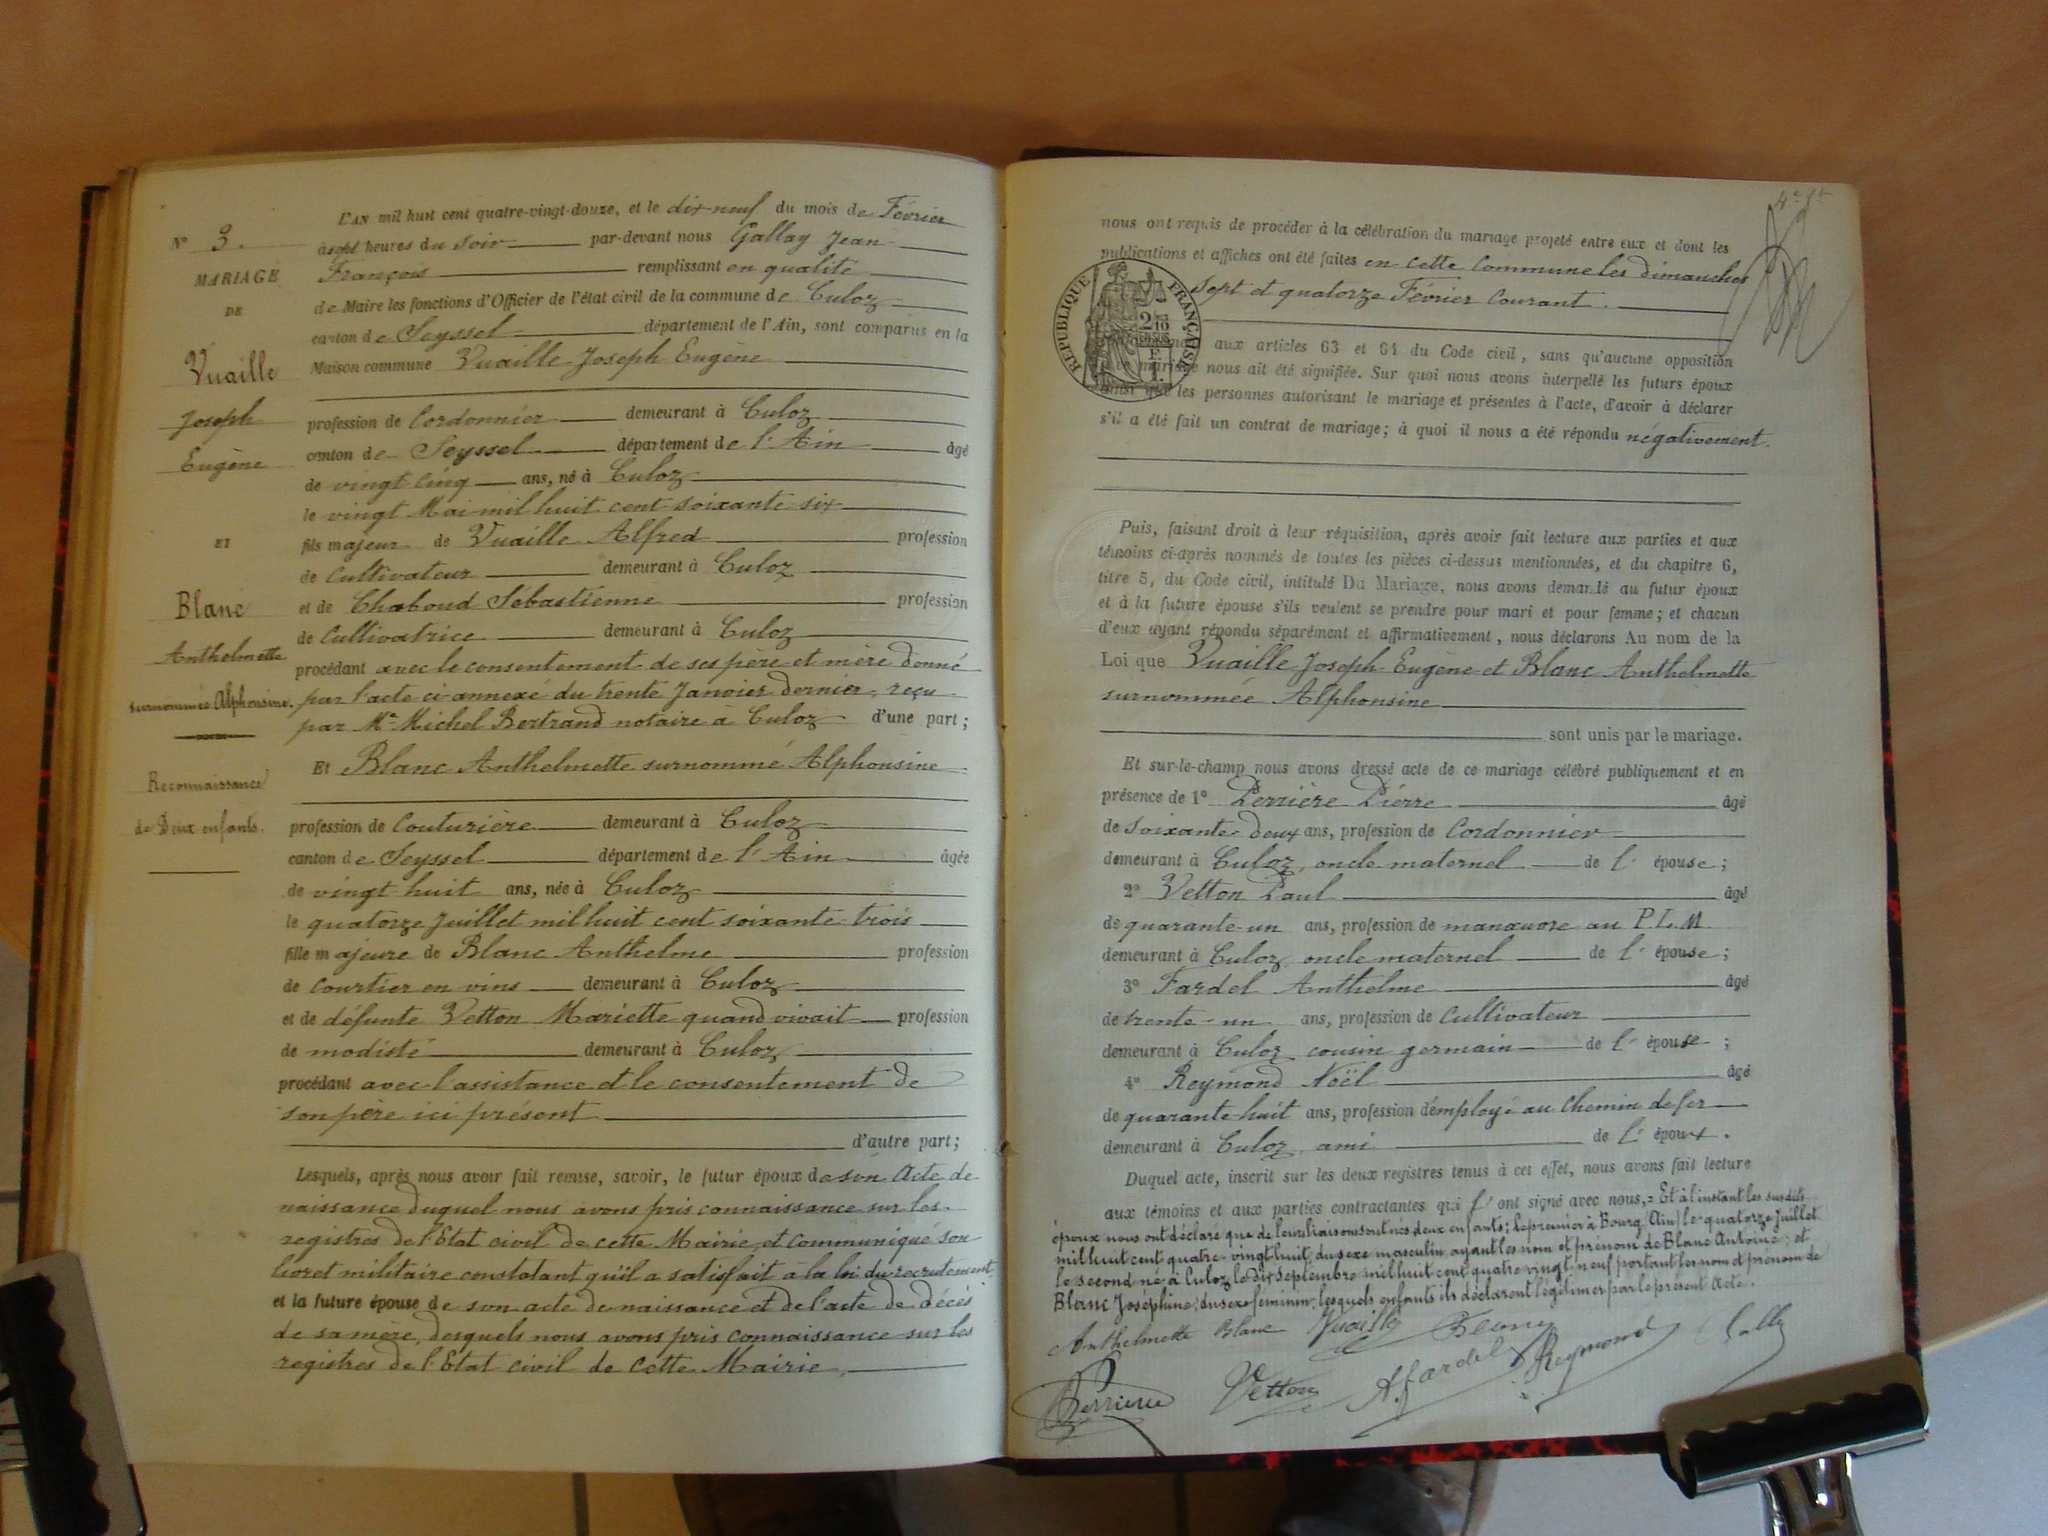 N° 3.
MARIAGE
DE
Vuaille
Joseph
Eugène
ET
Blanc
Anthelmette
surnommée Alphonsine.
Reconnaissance
de Deux enfants.
L'AN mil huit cent quatre-vingt-douze, et le dix-neuf du mois de Février
à sept heures du soir par-devant nous Gallay Jean
François remplissant en qualité
de Maire les fonctions d'Officier de l'état civil de la commune de Culoz
canton de Seyssel département de l'Ain, sont comparus en la
Maison commune Vuaille Joseph Eugène
profession de Cordonnier demeurant à Culoz
canton de Seyssel département de l'Ain âgé
de vingt cinq ans, né à Culoz
le vingt Mai mil huit cent soixante-six
fils majeur de Vuaille Alfred profession
de Cultivateur demeurant à Culoz
et de Chaboud Sébastienne profession
de Cultivatrice demeurant à Culoz
procédant avec le consentement de ses père et mère donné
par l'acte ci-annexé du trente Janvier dernier, reçu
par Me Michel Bertrand notaire à Culoz d'une part;
Et Blanc Anthelmette surnommé Alphonsine
profession de Couturière demeurant à Culoz
canton de Seyssel département de l'Ain âgée
de vingt huit ans, née à Culoz
le quatorze Juillet mil huit cent soixante-trois
fille majeure de Blanc Anthelme profession
de Courtier en vins demeurant à Culoz
et de défunte Vetton Mariette quand vivait profession
de modiste demeurant à Culoz
procédant avec l'assistance et le consentement de
son père ici présent
d'autre part;
Lesquels, après nous avoir fait remise, savoir, le futur époux de son Acte de
naissance duquel nous avons pris connaissance sur les
registres de l'Etat civil de cette Mairie, et communiqué son
livret militaire constatant qu'il a satisfait à la loi du recrutement
et la future épouse de son acte de naissance et de l'acte de décès
de sa mère, desquels nous avons pris connaissance sur les
registres de l'Etat civil de cette Mairie,
nous ont requis de procéder à la célébration du mariage projeté entre eux et dont les
publications et affiches ont été faites en cette Commune les dimanches
Sept et quatorze Février Courant.
RÉPUBLIQUE FRANÇAISE
aux articles 63 et 64 du Code civil, sans qu'aucune opposition
mariage nous ait été signifiée. Sur quoi nous avons interpellé les futurs époux
ainsi que les personnes autorisant le mariage et présentes à l'acte, d'avoir à déclarer
s'il a été fait un contrat de mariage; à quoi il nous a été répondu négativement.
Puis, faisant droit à leur réquisition, après avoir fait lecture aux parties et aux
témoins ci-après nommés de toutes les pièces ci-dessus mentionnées, et du chapitre 6,
titre 5, du Code civil, intitulé Du Mariage, nous avons demandé au futur époux
et à la future épouse s'ils veulent se prendre pour mari et pour femme; et chacun
d'eux ayant répondu séparément et affirmativement, nous déclarons Au nom de la
Loi que Vuaille Joseph Eugène et Blanc Anthelmette
surnommée Alphonsine
sont unis par le mariage.
Et sur-le-champ nous avons dressé acte de ce mariage célébré publiquement et en
présence de 1° Perrière Pierre âgé
de soixante-deux ans, profession de Cordonnier
demeurant à Culoz, oncle maternel de l'épouse;
2° Vetton Paul âgé
de quarante-un ans, profession de manœuvre au P.L.M
demeurant à Culoz oncle maternel de l'épouse;
3° Fardel Anthelme âgé
de trente-un ans, profession de Cultivateur
demeurant à Culoz cousin germain de l'épouse;
4° Reymond Noël âgé
de quarante-huit ans, profession d'employé au Chemin de fer
demeurant à Culoz, ami de l'époux.
Duquel acte, inscrit sur les deux registres tenus à cet effet, nous avons fait lecture
aux témoins et aux parties contractantes qui l'ont signé avec nous, = Et à l'instant les susdits
époux nous ont déclaré que de leur liaison sont nés deux enfants; le premier à Bourg (Ain) le quatorze Juillet
mil huit cent quatre-vingt-huit, du sexe masculin ayant les nom et prénom de Blanc Antoine; et
le second né à Culoz le dix Septembre mil huit cent quatre vingt neuf portant les nom et prénom de
Blanc Joséphine; du sexe féminin; lesquels enfants ils déclarent légitimer par le présent Acte.
Anthelmette Blanc Vuaille Blanc
Perriere Vetton A. fardel Reymond Gally